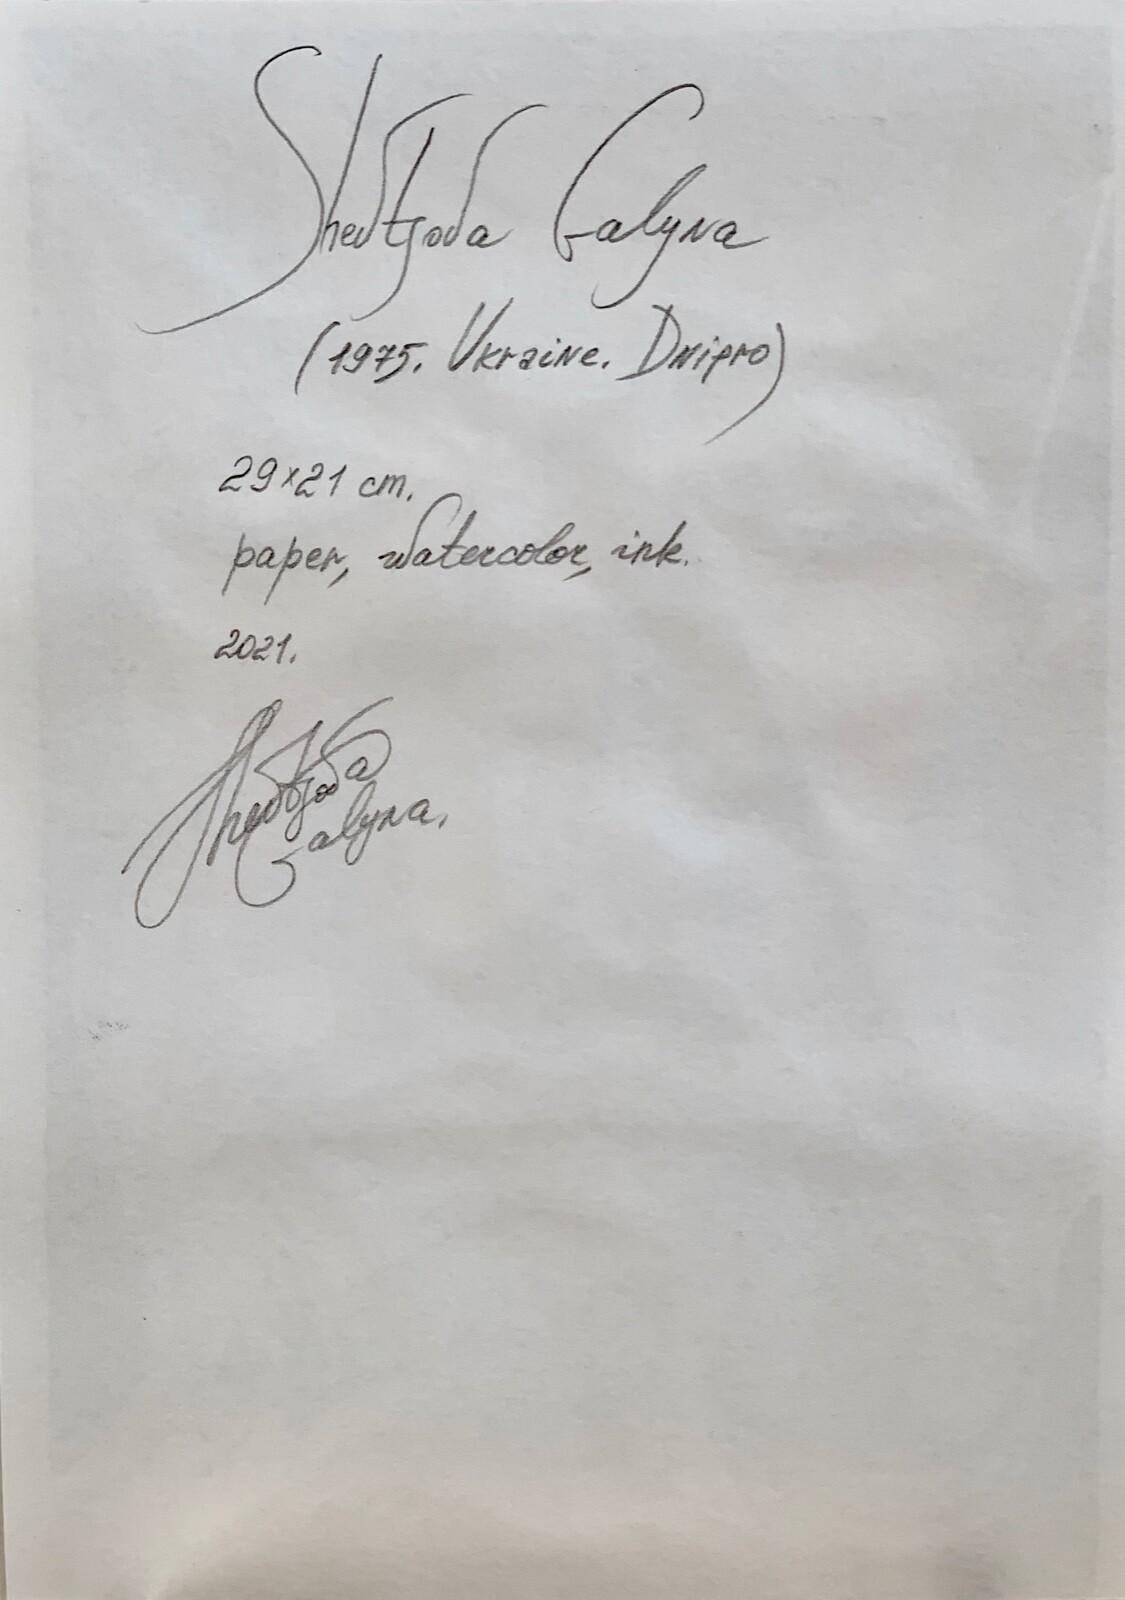 Shevtjova Galyna
(1975. Ukraine. Dnipro)
29×21 cm.
paper, watercolor, ink.
2021.
Shevtjova
Galyna.